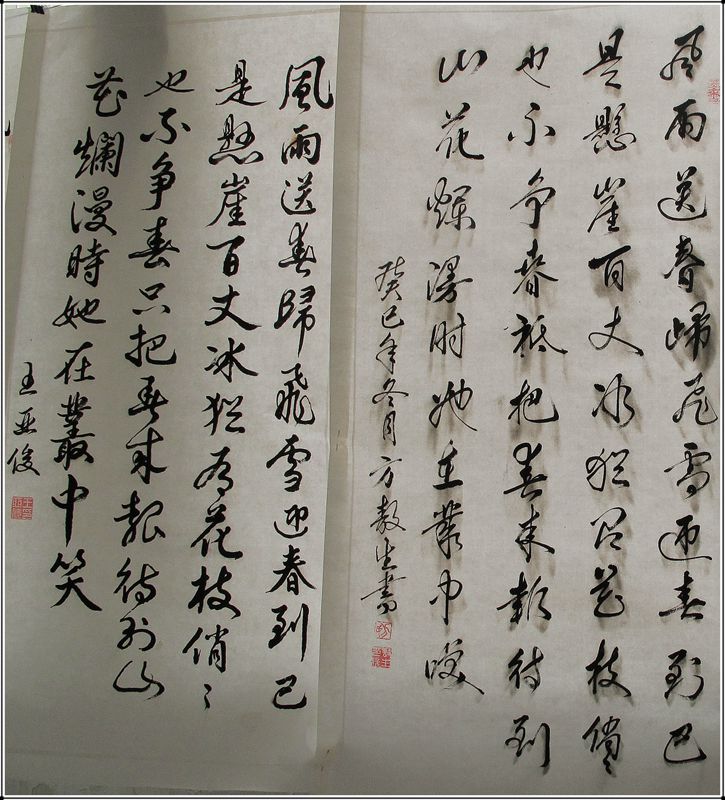 风雨送春归飞雪迎春到已
是悬崖百丈冰犹有花枝俏々
也不争春祇把春来報待到
山花爛漫时她在叢中咲
癸巳年冬月方生書
風雨送春歸飛雪迎春到已
是懸崖百丈冰犹有花枝俏々
也不争春只把春来報待到山
花爛漫時她在叢中笑
王亚俊